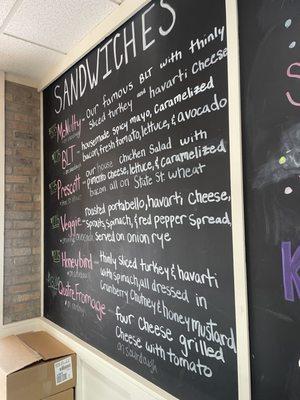 SANDWICHES
McNulty - Our famous BLT with thinly
sliced turkey and havarti Cheese
BLT - housemade spicy mayo, caramelized
bacon, fresh tomato, lettuce, & avocado
Prescott - our house Chicken Salad with
pimento Cheese, lettuce, & caramelized
bacon all on State St. wheat
Veggie - roasted portabello, havarti Cheese,
sprouts, spinach, & red pepper spread.
Served on onion rye
Honeybird - thinly sliced turkey & havarti
with spinach, all dressed in
Cranberry Chutney & honey mustard
Quatre Fromage - four Cheese grilled
Cheese with tomato
on sourdough